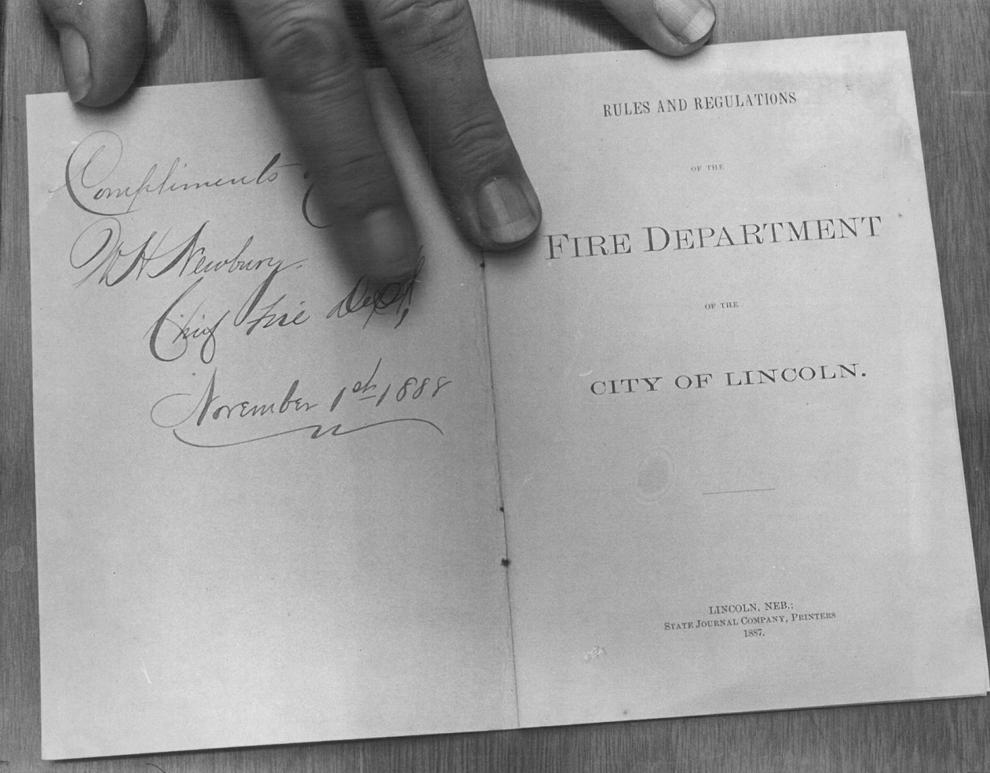 Compliments
W H Newbury.
Chief Fire Dept,
November 1st 1888
RULES AND REGULATIONS
OF THE
FIRE DEPARTMENT
OF THE
CITY OF LINCOLN.
LINCOLN, NEB.:
STATE JOURNAL COMPANY, PRINTERS
1887.